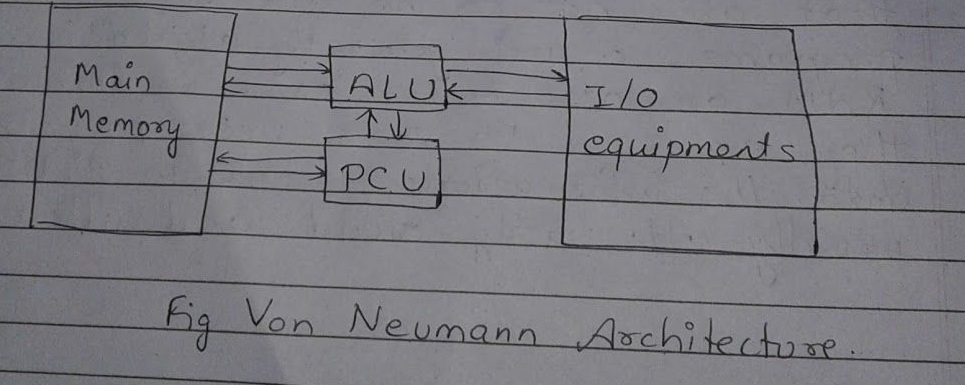 Main
Memory
ALU
PCU
I/O
equipments
Fig Von Neumann Architecture.